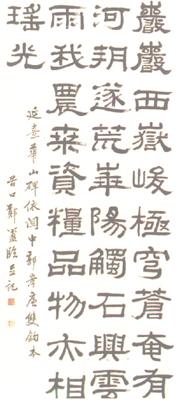 巖巖西嶽峻極穹蒼奄有
河朔遂荒崋陽觸石興雲
雨我農桒資糧品物亦相
瑤光
延熹華山碑依関中郭雙鉤本
谷口鄭簠臨並記